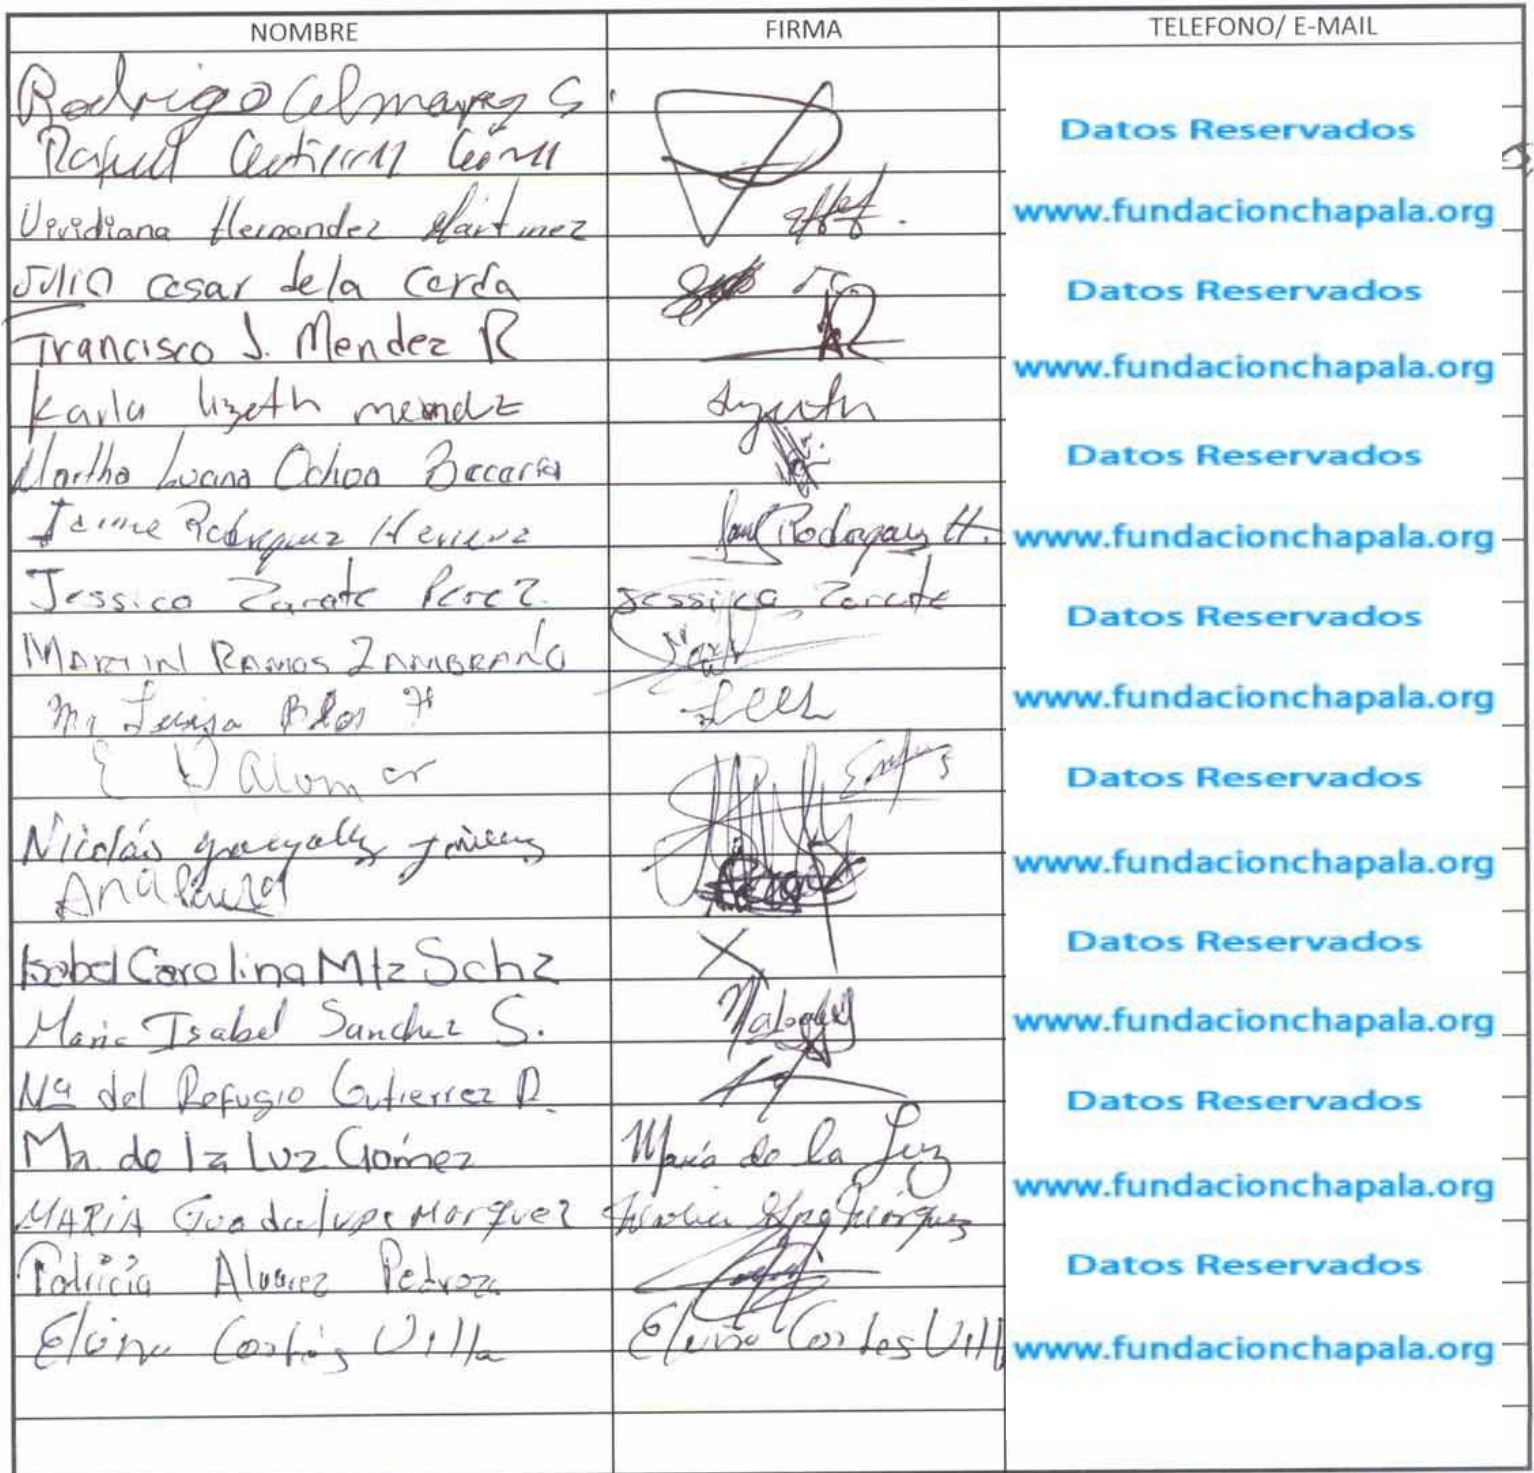 NOMBRE FIRMA TELEFONO/ E-MAIL
Rodrigo Almarez S.
Datos Reservados
Rafael
Viridiana Hernandez Martinez
www.fundacionchapala.org
Julio cesar de la Cerda
Datos Reservados
Francisco J. Mendez R
www.fundacionchapala.org
Karla lizeth mendz
Martha Luana Ochoa Becarra
Datos Reservados
Jaime Rodriguez Herrera Rodriguez H.
www.fundacionchapala.org
Jessica Zarate Perez. Jessica Zarate
Datos Reservados
MARTIN RAMOS ZAMBRANO
Ma Luisa
www.fundacionchapala.org
E Palomar
Datos Reservados
Nicolás
www.fundacionchapala.org
Ana Laura
Datos Reservados
Isabel Carolina Mtz Schz X
Maria Isabel Sanchez S.
www.fundacionchapala.org
Mª del Refugio Gutierrez P.
Datos Reservados
Ma. de la Luz Gómez María de la Luz
www.fundacionchapala.org
MARIA Guadalupe Marquez
Patricia Alvarez Pedroza
Datos Reservados
Cortés Villa Cortes Vill
www.fundacionchapala.org